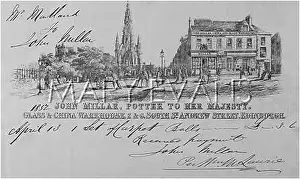 Mr Maitland
To
John Millar
MARY EVANS
1852 JOHN MILLAR, POTTER TO HER MAJESTY.
GLASS & CHINA WAREHOUSE, 2 & 6, SOUTH ST ANDREW STREET, EDINBURGH.
April 13 1 Set of Carpet Balls 3 6
Received payment
John Millar
For